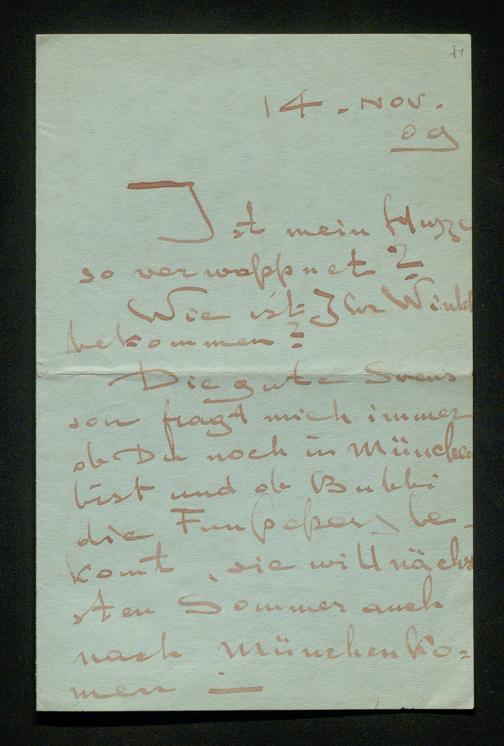 71
14. Nov.
09
Ist mein
so verwappnet?
Wie ist Ihr
bekommen?
Die gute Svens
son fragt mich immer
ob Du noch in München
bist und ob Bubbi
die be-
komt, sie will nächs
sten Sommer auch
nach München ko=
men —